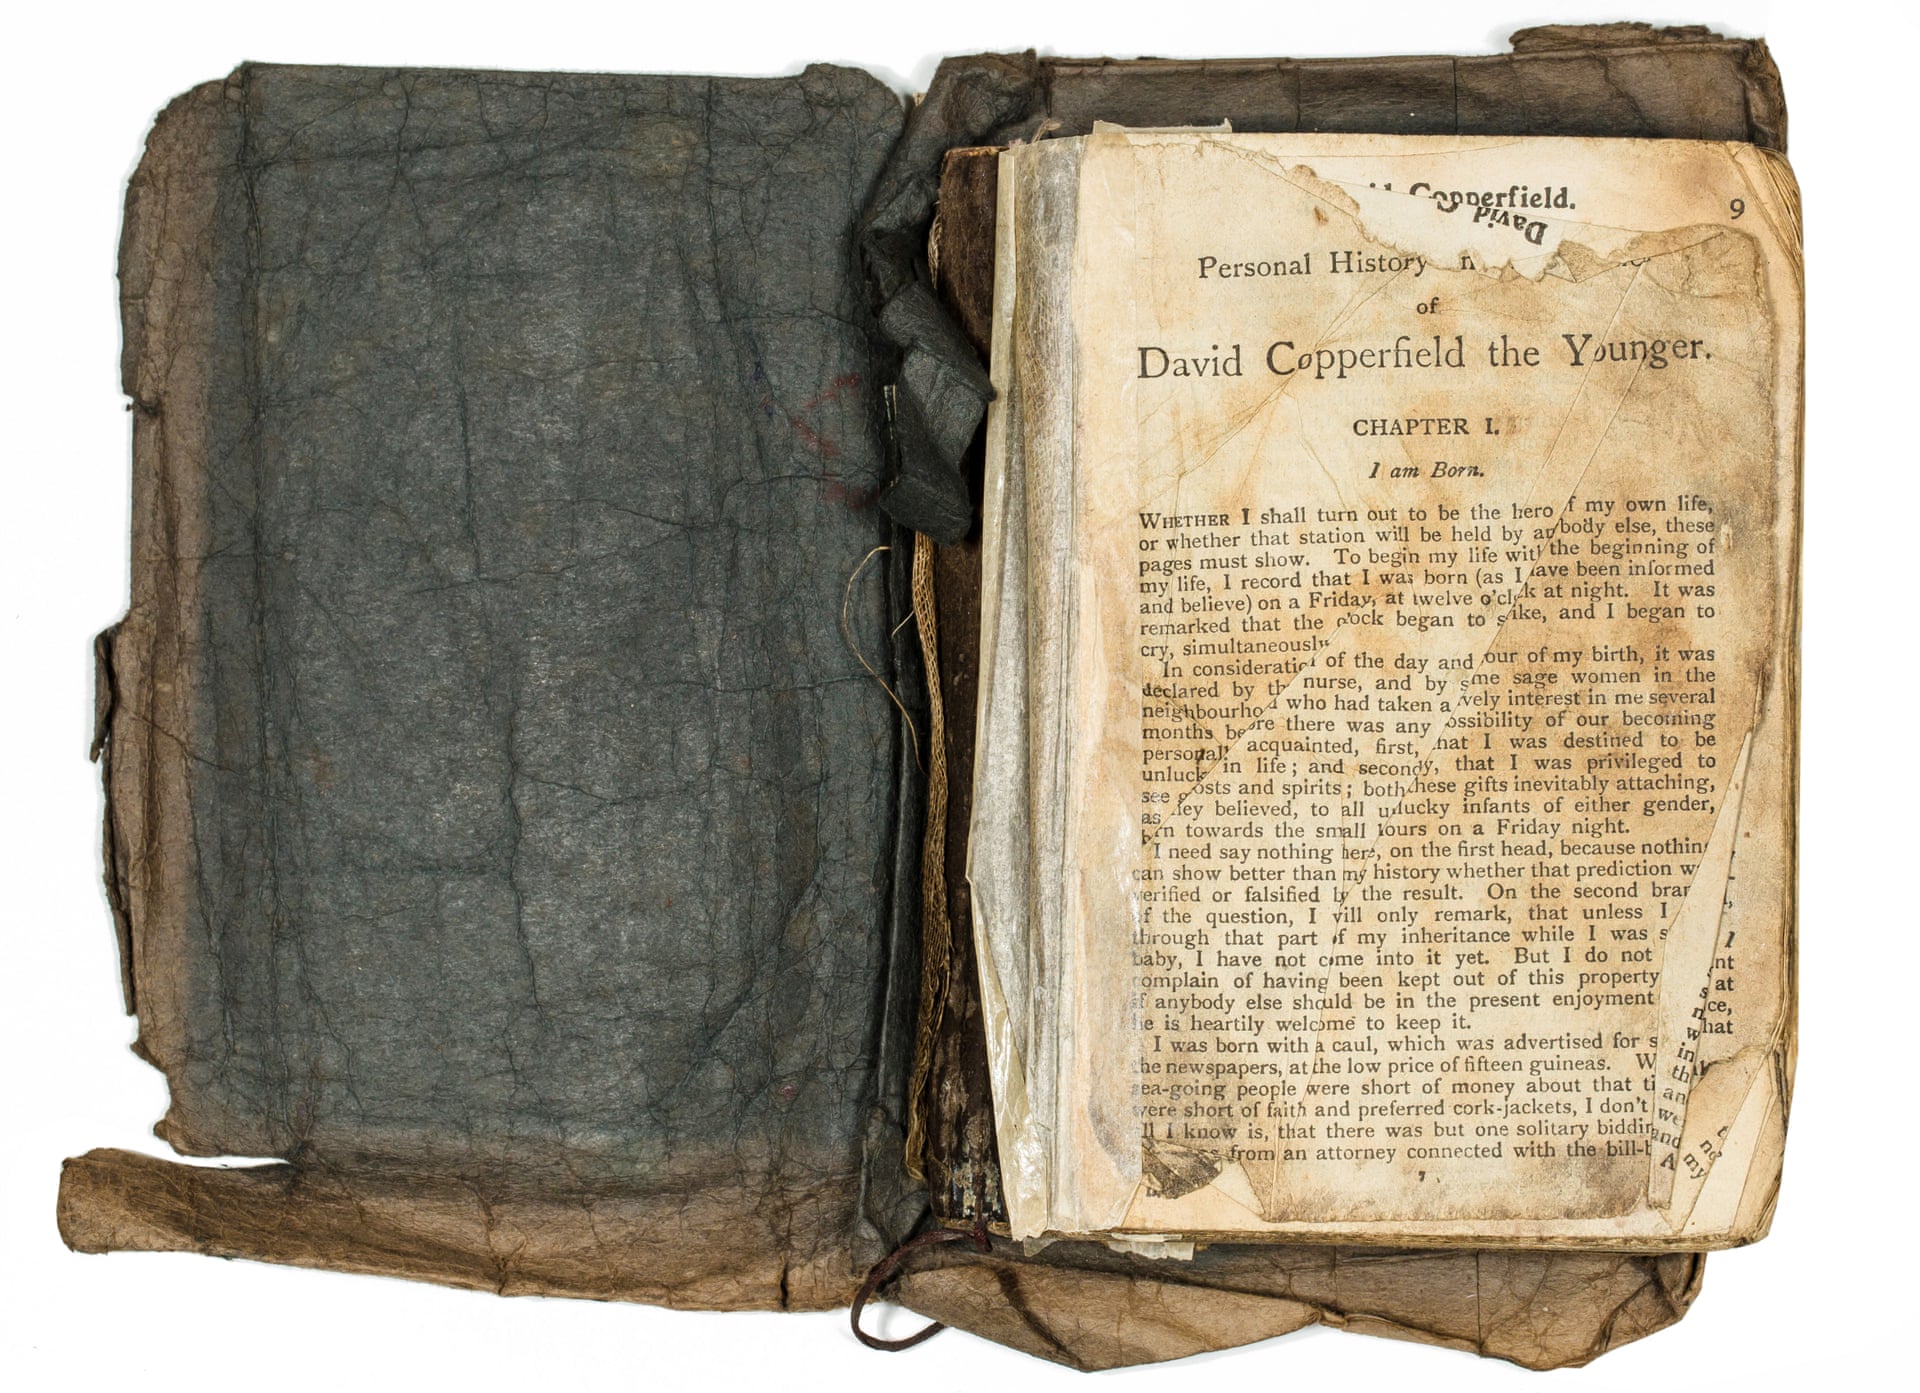 Copperfield.
David
9
Personal History
of
David Copperfield the Younger.
CHAPTER I.
I am Born.
WHETHER I shall turn out to be the hero f my own life,
or whether that station will be held by an body else, these
pages must show. To begin my life wit the beginning of
my life, I record that I was born (as I ave been informed
and believe) on a Friday, at twelve o'cl k at night. It was
remarked that the c ock began to s ike, and I began to
cry, simultaneously
In consideratio of the day and our of my birth, it was
declared by th nurse, and by s me sage women in the
neighbourho d who had taken a vely interest in me several
months be ore there was any ossibility of our becoming
personal acquainted, first, hat I was destined to be
unluck in life; and second y, that I was privileged to
see osts and spirits; both hese gifts inevitably attaching,
as ey believed, to all u lucky infants of either gender,
rn towards the small ours on a Friday night.
I need say nothing here, on the first head, because nothin
can show better than my history whether that prediction w
verified or falsified by the result. On the second bran
f the question, I will only remark, that unless I
through that part of my inheritance while I was s
baby, I have not come into it yet. But I do not
omplain of having been kept out of this property
if anybody else should be in the present enjoyment
he is heartily welcome to keep it.
I was born with a caul, which was advertised for s
he newspapers, at the low price of fifteen guineas. W
ea-going people were short of money about that ti
were short of faith and preferred cork-jackets, I don't
ll I know is, that there was but one solitary biddin
from an attorney connected with the bill-b
nt
at
ce,
hat
in
th
an
we
and
A
my